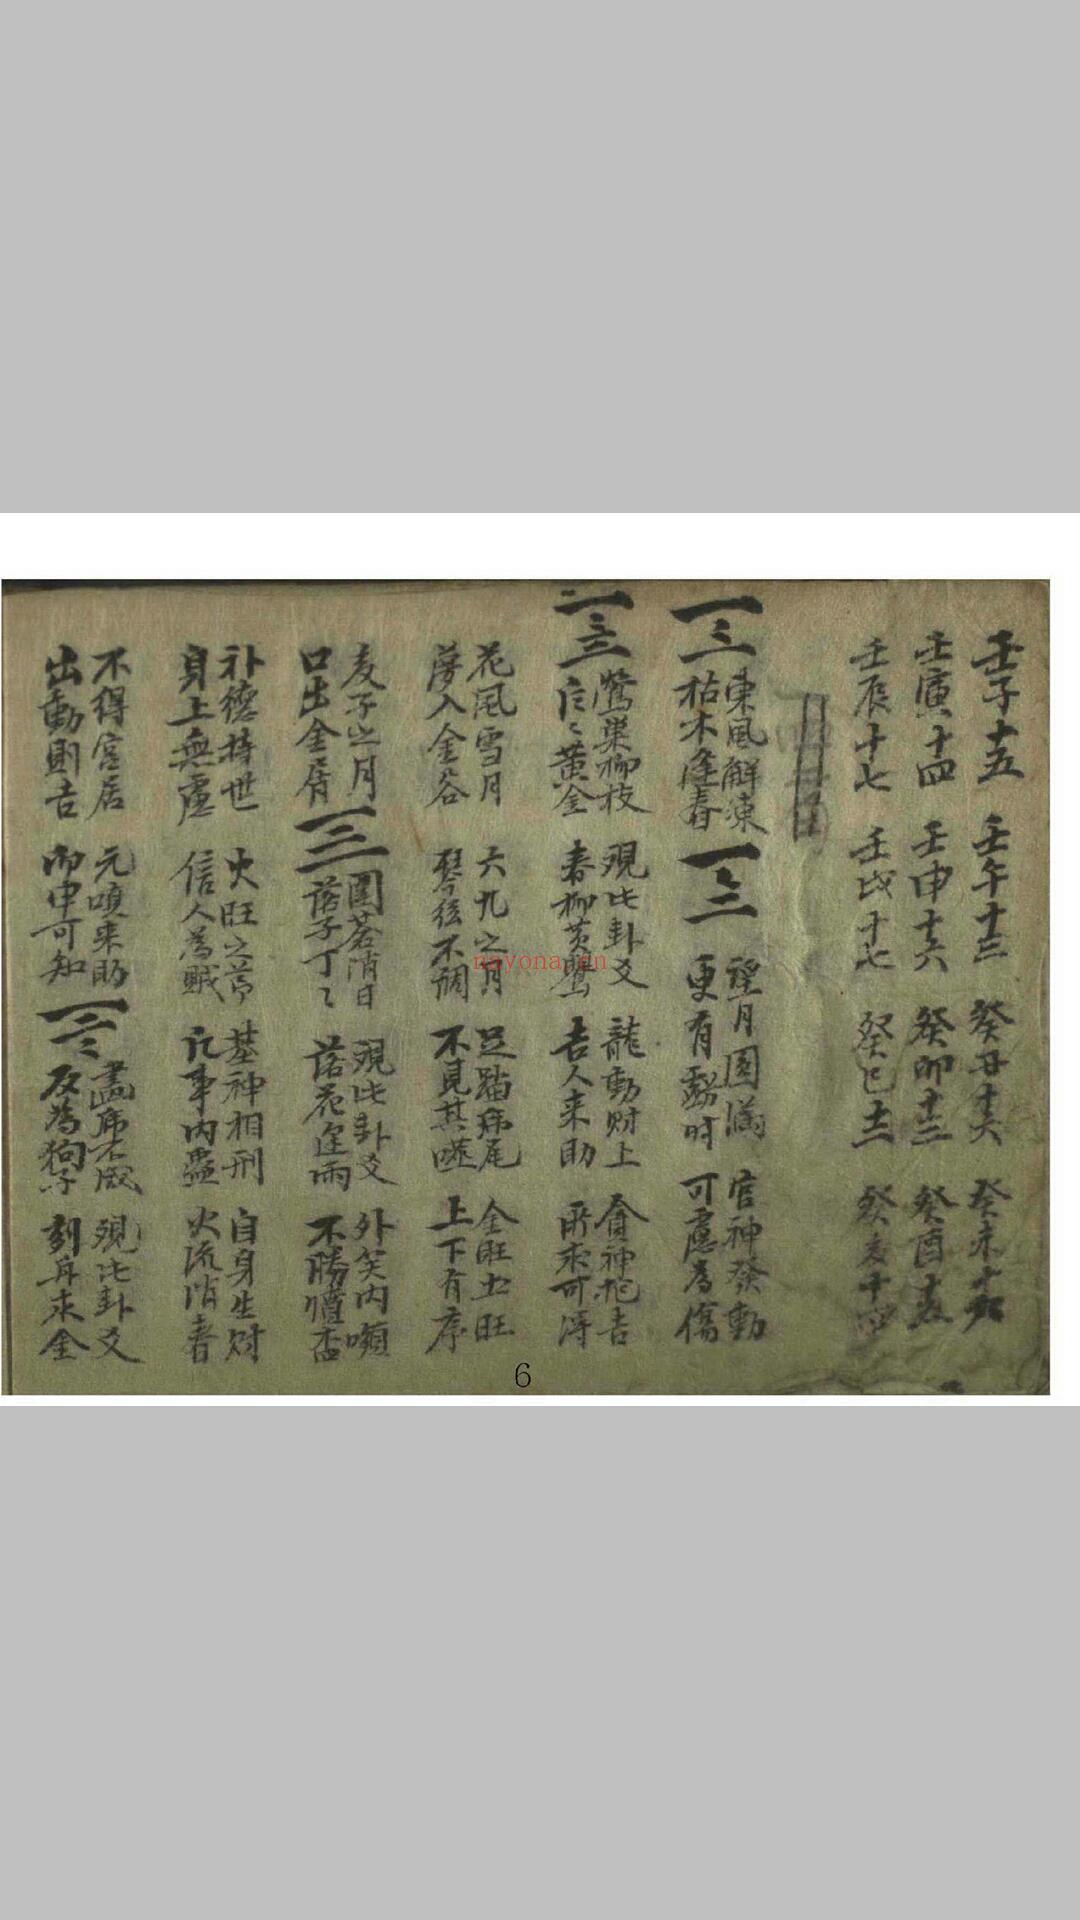 壬子十五 壬午十三 癸丑十六 癸未十九
壬寅十四 壬申十六 癸卯十三 癸酉十五
壬辰十七 壬戌十七 癸巳十二 癸亥十四
一三
東風解凍
枯木逢春
一三
望月圓滿
更有虧時
官神發動
可慮為傷
一
鶯巢柳枝
片〻黃金
現此卦爻
春柳黃鶯
龍動財上
吉人来助
貪神抱吉
所求可淂
花風雪月
夢入金谷
六九之月
琴絃不調
足踏乕尾
不見其噬
金旺土旺
上下有序
麦子之月
口出金屑
一三
圍棊消日
落子丁〻
現此卦爻
落花逢雨
外笑内嚬
不勝
朴德持世
身上無慮
火旺之節
信人為賊
基神相刑
凡事内蠱
自身生財
火流消者
不得宮居
出動則吉
元嗔来助
而中可知
一二
畵乕不成
反為狗子
現此卦爻
刻舟求金
nayona.cn
6